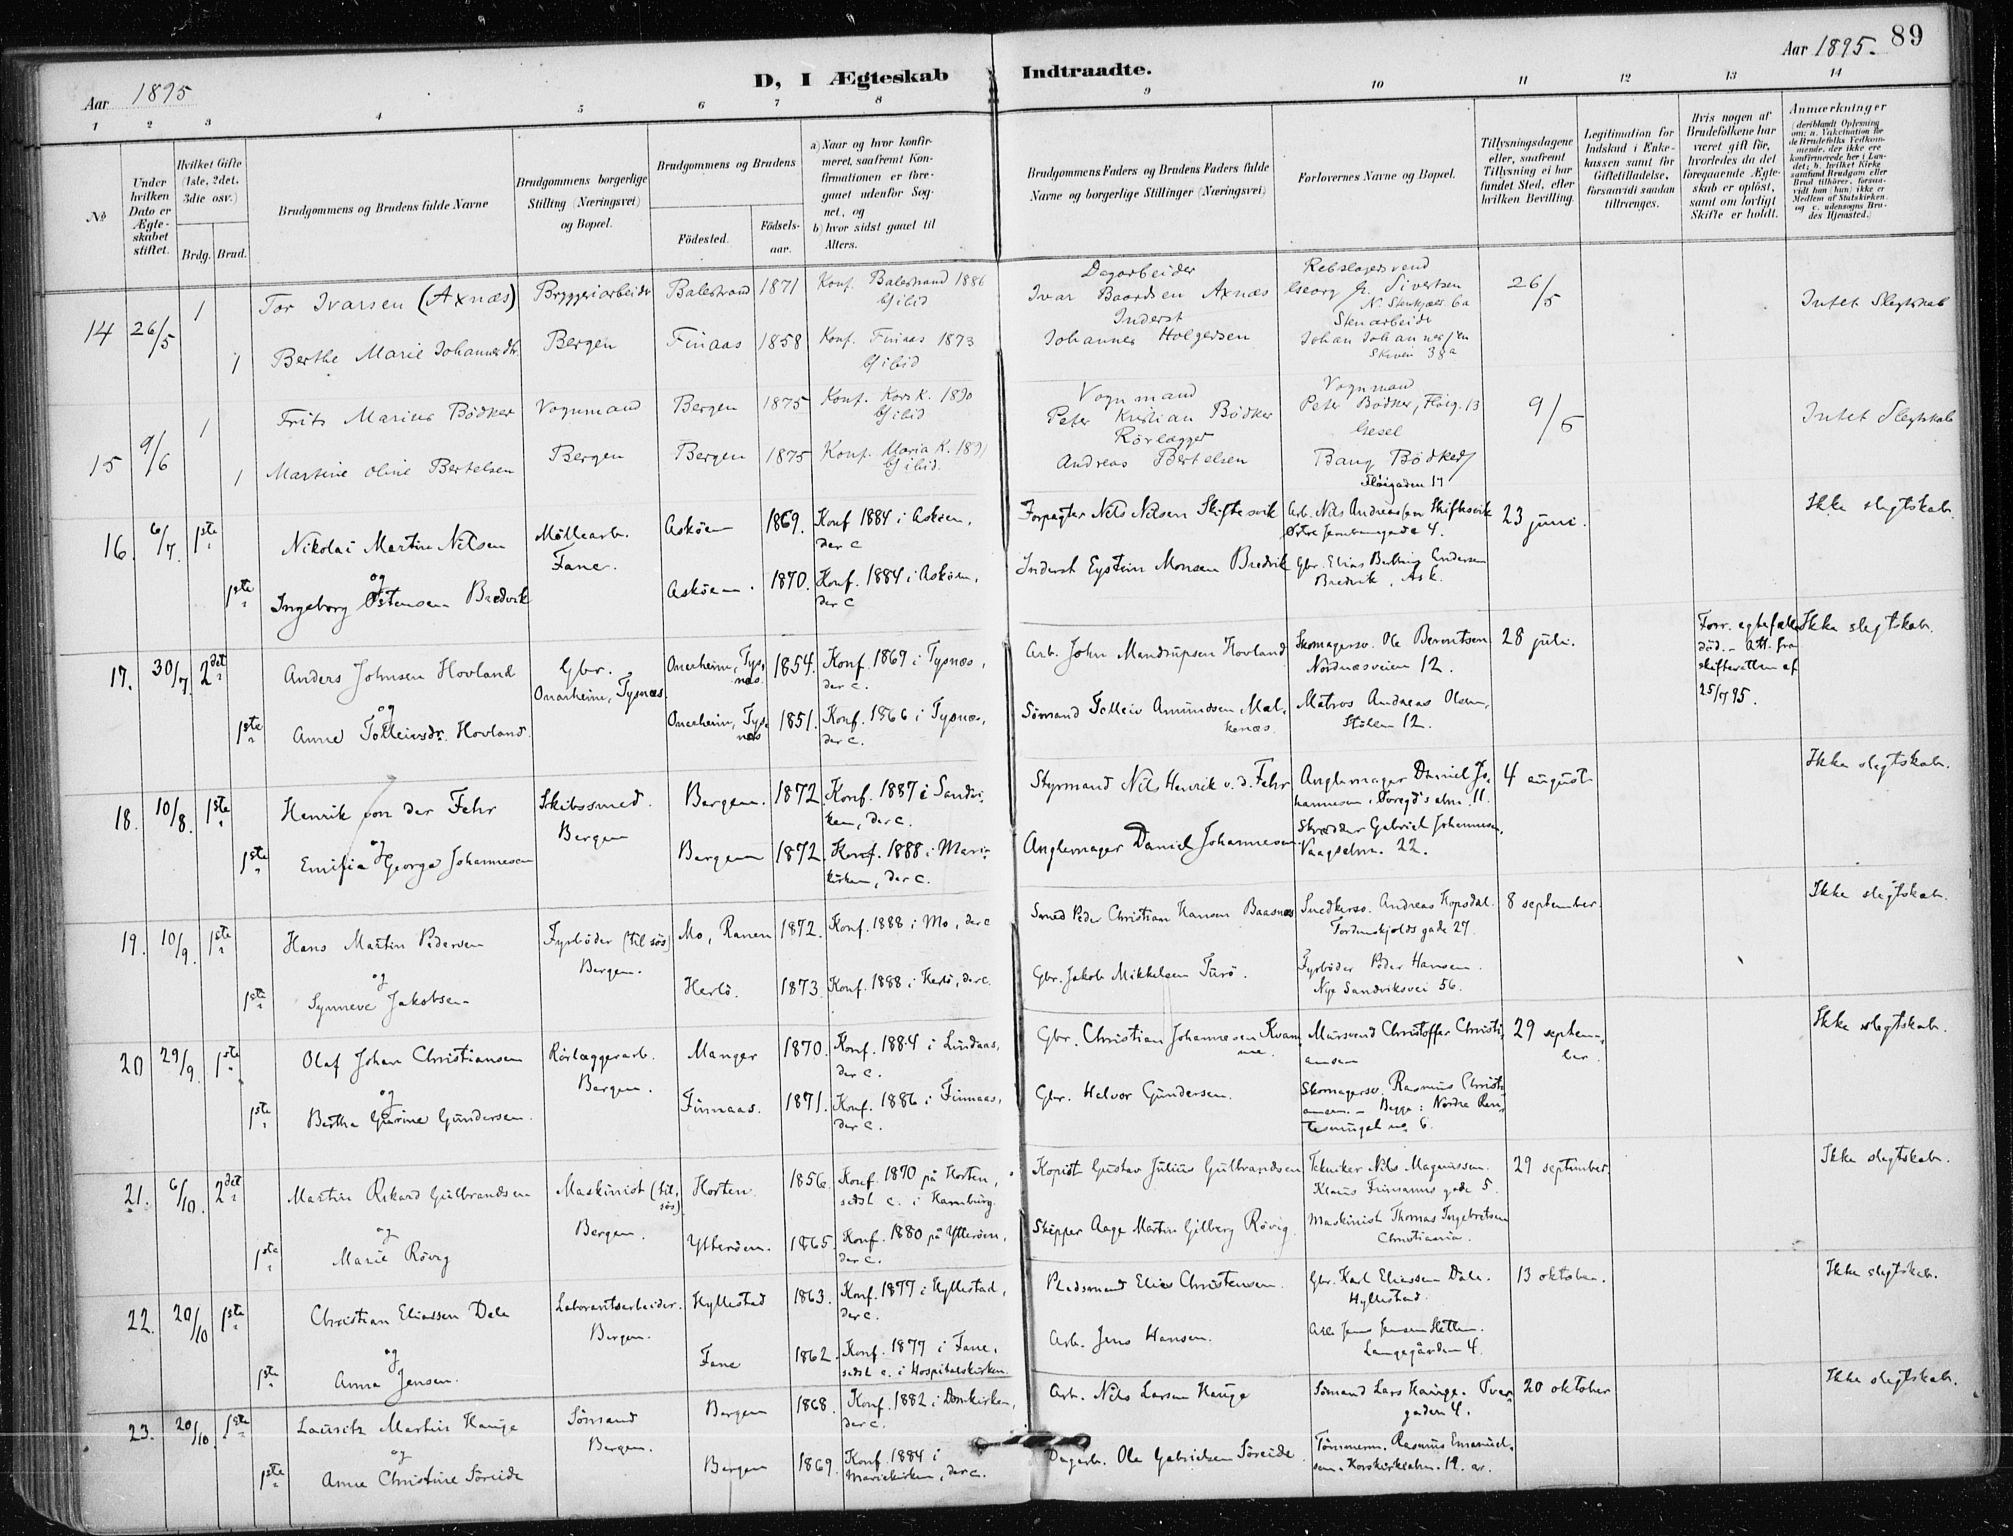 Aar 1895
D, I Ægteskab Indtraadte.
Aar 1895. 89
1 2 3 4 5 6 7 8 9 10 11 12 13 14
No
Under hvilken Dato er Ægteskabet stiftet.
Hvilket Gifte (1ste, 2det, 3die osv.)
Brdg. Brud.
Brudgommens og Brudens fulde Navne
Brudgommens borgerlige Stilling (Næringsvei) og Bopæl.
Brudgommens og Brudens
Födested.
Födselsaar.
a) Naar og hvor konfirmeret, saafremt Konfirmationen er foregaaet udenfor Sognet, og
b) hvor sidst gaaet til Alters.
Brudgommens Faders og Brudens Faders fulde Navne og borgerlige Stillinger (Næringsvei)
Forlovernes Navne og Bopæl.
Tillysningsdagene eller, saafremt Tillysning ei har fundet Sted, efter hvilken Bevilling.
Legitimation for Indskud i Enkekassen samt for Giftetilladelse, forsaavidt saadan tiltrænges.
Hvis nogen af Brudefolkene har været gift før, hvorledes da det foregaaende Ægteskab er oplöst, samt om lovligt Skifte er holdt.
Anmærkninger (deriblandt Oplysning om: a. Vakcination for de Brudefolks Vedkommende, der ikke ere konfirmerede her i Landet; b. hvilket Kirkesamfund Brudgom eller Brud tilhörer, forsaavidt han (hun) ikke er Medlem af Statskirken, og c. udensogns Brudes Hjemsted.)
14 26/5 1 Tor Ivarsen (Axnæs) Bryggeriarbeider Balestrand 1871 Konf. Balestrand 1886 Dagarbeider Ivar Baardsen Axnæs Rebslagersvend Georg G. Sivertsen 26/5 Intet Slegtskab
1 Berthe Marie Johannesdtr. Bergen Finaas 1858 Konf. Finaas 1873 Inderst Johannes Holgersen Stenarbeider Johan Johannessen
15 9/6 1 Frits Marius Bödker Vognmand Bergen 1875 Konf. Kors K. 1890 Vognmand Peter Kristian Bödker Vognmand Peter Bödker, Flöig. 13 9/6 Intet Slegtskab
1 Martine Oline Bertelsen Bergen Bergen 1875 Konf. Maria K. 1891 Rörlægger Andreas Bertelsen Bang Bödker Flöigaden 17
16. 6/7. 1ste Nikolai Martin Nilsen Möllearb. Askøen 1869. Konf 1884 i Askøen, der c Forpagter Nils Nilsen Skiftesvik Arb. Nils Andreassen Skiftesvik Østre 4. 23 juni. Ikke slegtskab.
og
1ste Ingeborg Østensen Bredvik Fane. Askøen. 1870. Konf. 1884 i Askøen, der c Inderst Eystein Monsen Bredvik Gbr. Elias Andersen Bredvik, Ask.
17. 30/7. 2det Anders Johnsen Hovland Gbr. Onarheim, Tysnæs Onarheim, Tysnæs 1854. Konf. 1869 i Tysnæs, der c. Arb. John Mandrupsen Hovland Skomagersv. Ole Berentsen Nordnæsveien 12. 28 juli. Forr. egtefælle död. – Att. fra skifteretten af 25/7 95. Ikke slegtskab.
og
1ste Anne Tolleivsdr. Hovland. Onarheim, Tysnæs 1851. Konf. 1866 i Tysnæs, der c. Sömand Tolleiv Amundsen Malkenæs. Matros Andreas Olsen, Stölen 12.
18. 10/8. 1ste Henrik von der Fehr Skibssmed. Bergen. 1872. Konf. 1887 i Sandviken, der c. Styrmand Nils Henrik v. d. Fehr Anglemager Daniel Johannesen, 11. 4 august. Ikke slegtskab.
og
1ste Emilia Georga Johannesen Bergen Bergen 1872. Konf. 1888 i Mariekirken, der c. Anglemager Daniel Johannesen. Skrædder Gabriel Johannesen, Vaagsalm. 22.
19. 10/9. 1ste Hans Martin Pedersen Fyrböder (til sös) Mo, Ranen 1872. Konf. 1888 i Mo, der c Smed Peder Christian Hansen Baasnæs Snedkersv. Andreas Hopsdal. Tordenskjolds gade 27. 8 september. Ikke slegtskab.
og
1ste Synneve Jakobsen Bergen. Herlö. 1873. Konf. 1888 i Herlö, der c. Gbr. Jakob Mikkelsen Turö. Fyrböder Peder Hansen. Nye Sandviksvei 56.
20 29/9. 1ste Olaf Johan Christiansen Rörlæggerarb. Manger 1870. Konf. 1884 i Lindaas, der c. Gbr. Christian Johannesen Kvamme. Mursvend Christoffer Christiansen 29 september. Ikke slegtskab.
og
1ste Bertha Gurine Gundersen. Bergen. Finnaas. 1871. Konf. 1886 i Finnaas, der c. Gbr. Halvor Gundersen. Skomagersv. Rasmus Christiansen. – Begge: Nordre no. 6.
21. 6/10. 2det Martin Rikard Gulbrandsen Maskinist (til sös). Horten. 1856. Konf. 1870 på Horten, sidst c. i Hamburg. Kopist Gustav Julius Gulbrandsen Tekniker Nils Magnussen. Klaus gade 5. 29 september. Ikke slegtskab.
og
1ste Marie Rövig Bergen. Ytterøen. 1865. Konf. 1880 på Ytterøen, der c. Skipper Aage Martin Gilberg Rövig. Maskinist Thomas Ingebretsen Christiania.
22. 20/10 1ste Christian Eliassen Dale Laborantsarbeider. Hyllestad 1863. Konf. 1877 i Hyllestad, der c. Pladsmand Elias Christensen. Gbr. Karl Eliassen Dale. Hyllestad. 13 oktober. Ikke slegtskab.
og
1ste Anna Jensen. Bergen. Fane 1862. Konf. 1877 i Fane, sidst c. i Hospitalskirken Arb. Jens Hansen. Arb. Jens Jensen Sletten. Langegården 4.
23. 20/10. 1ste Lauritz Martin Hauge Sömand Bergen 1868. Konf. 1882 i Domkirken, der c. Arb. Nils Larsen Hauge Sömand Lars Hauge. Tvergaden 4. 20 oktober Ikke slegtskab.
og
1ste Anne Christine Söreide Bergen. Bergen 1869. Konf. 1884 i Mariekirken, der c. Dagarb. Ole Gabrielsen Söreide. Tömmerm. Rasmus Emanuelsen. Korskirkealm. 12.